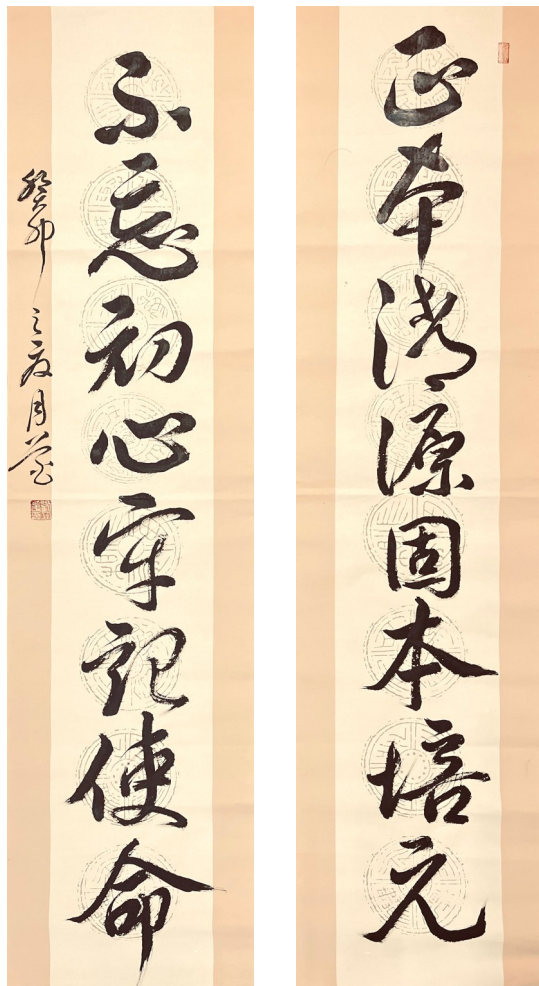 正本清源固本培元
不忘初心牢记使命
癸卯之夏月